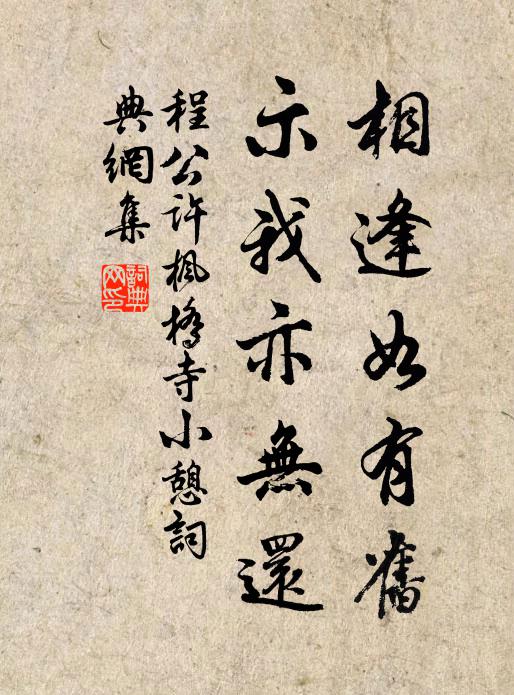 相逢如有舊
示我亦無還
程公許楓橋寺小憩詞
典網集
詞典網印